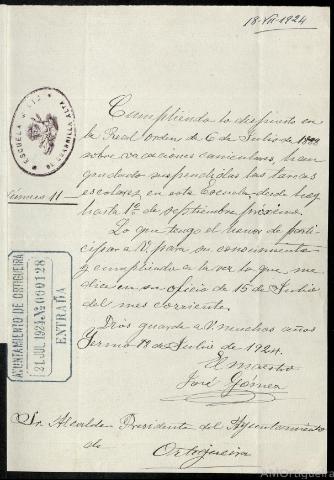 18-VII-1924
ESCUELA
Cumpliendo lo dispuesto en
la Real orden de 6 de Julio de
sobre vacaciones caniculares, han
quedado suspendidas las tareas
escolares en esta Escuela, desde hoy
hasta 1º de Septiembre próximo.
Número 11
Lo que tengo el honor de parti-
cipar a V. para su conocimiento
y cumpliendo a la vez lo que me
dice en su oficio de 15 de Julio
del mes corriente.
Dios guarde a V. muchos años
Yermo 18 de Julio de 1924.
El maestro
José Gómez
AYUNTAMIENTO DE ORTIGUEIRA
21 JUL 1924 Nº 000128
ENTRADA
Sr. Alcalde Presidente del Ayuntamiento
de Ortigueira
AMOrtigueira